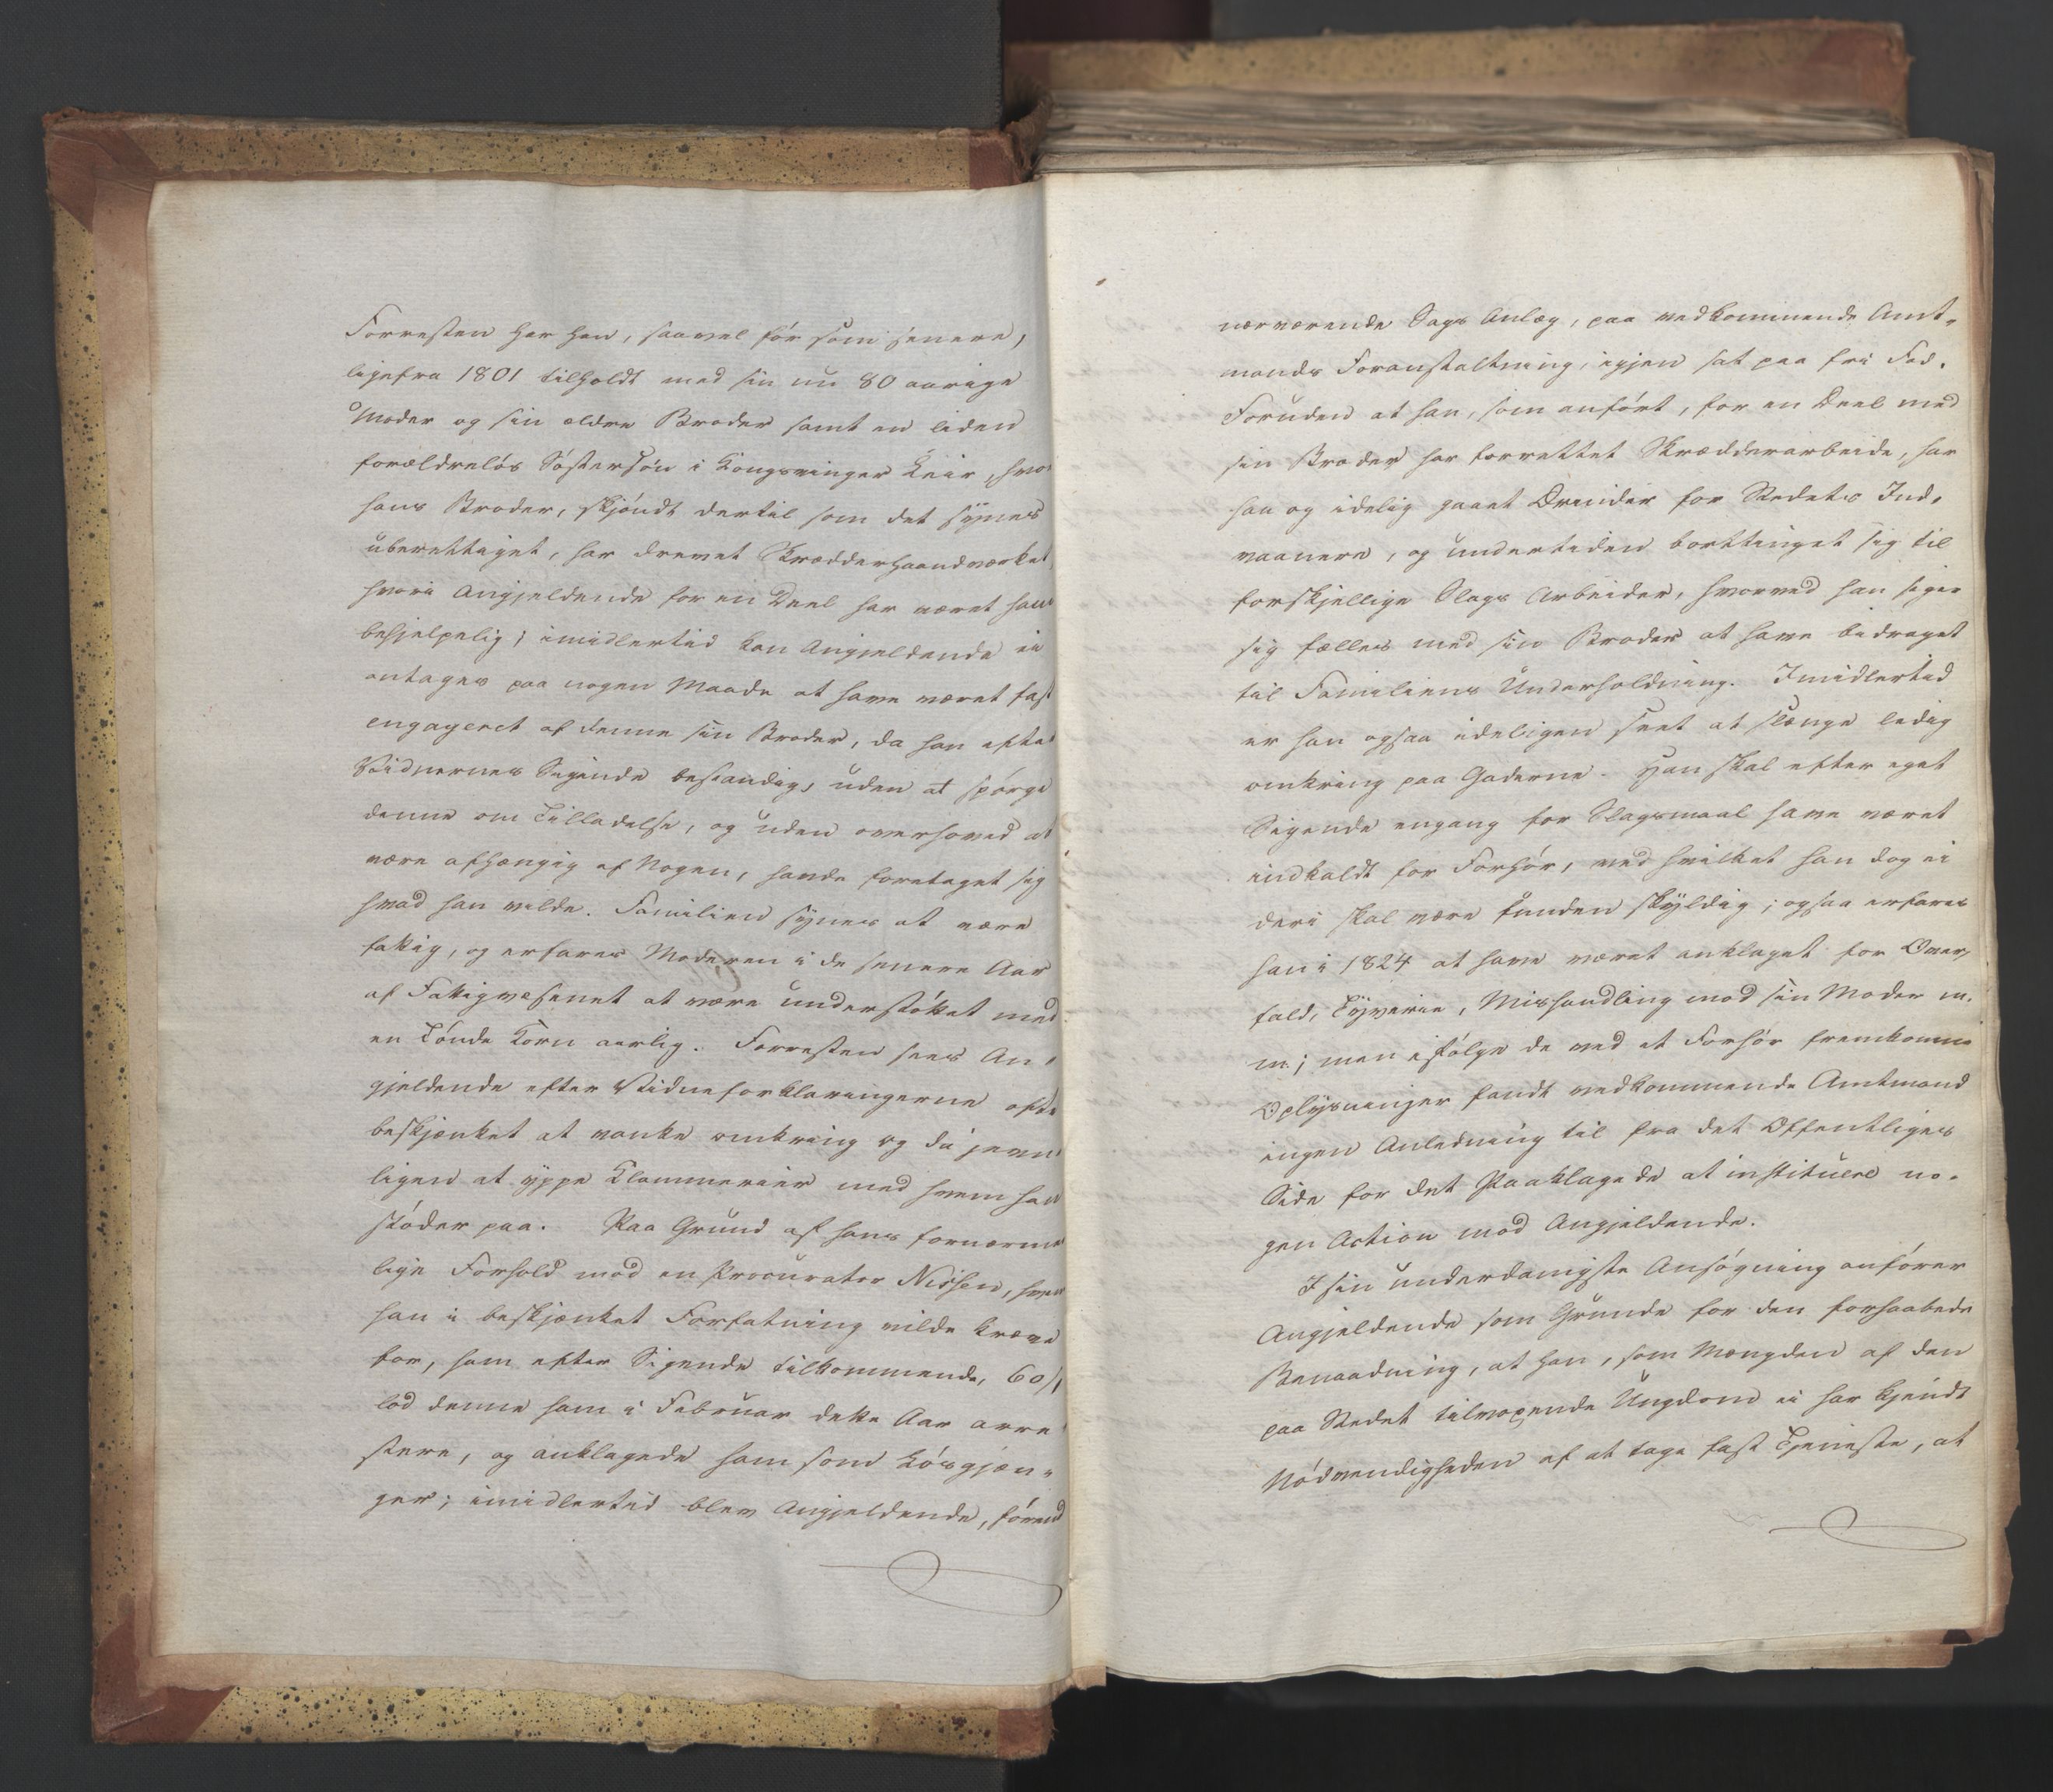 Forresten har han, saavel før som senere,
ligefra 1801 tilholdt med sin nu 80 aarige
Moder og sin ældre Broder samt en liden
forældreløs Søstersøn i Kongsvinger Leir, hvor
hans Broder, skjøndt dertil som det synes
uberettiget, har drevet Skrædderhaandværket,
hvori Angjeldende for en Deel har været ham
behjelpelig; imidlertid kan Angjeldende ei
antages paa nogen Maade at have været fast
engageret af denne sin Broder, da han efter
Vidnernes Sigende bestandig, uden at spørge
denne om Tilladelse, og uden overhoved at
være afhængig af Nogen, havde foretaget sig
hvad han vilde. Familien synes at være
fattig, og erfares Moderen i de senere Aar
af Fattigvæsenet at være understøttet med
en Tønde Korn aarlig. Forresten sees An-
gjeldende efter Vidneforklaringerne ofte
beskjænket at vanke omkring og da jevn-
ligen at yppe Klammerier med hvem han
støder paa. Paa Grund af hans fornærme-
lige Forhold mod en Procurator Nissen, hvem
han i beskjænket Forfatning vilde kræve
for, ham efter Sigende tilkommende, 60 ß
lod denne ham i Februar dette Aar arre-
stere, og anklagede ham som Løsgjæn-
ger; imidlertid blev Angjeldende, førend
nærværende Sags Anlæg, paa vedkommende Amt-
mands Foranstaltning, igjen sat paa fri Fod.
Foruden at han, som anført, for en Deel med
sin Broder har forrettet Skrædderarbeide, har
han og idelig gaaet Ærinder for Stedets Ind-
vaanere, og undertiden borttinget sig til
forskjellige Slags Arbeider, hvorved han siger
sig fælles med sin Broder at have bidraget
til Familiens Underholdning. Imidlertid
er han ogsaa ideligen seet at slænge ledig
omkring paa Gaderne. Han skal efter eget
Sigende engang for Slagsmaal have været
indkaldt for Forhør, ved hvilket han dog ei
deri skal være funden skyldig; ogsaa erfares
han i 1824 at have været anklaget for Over-
fald, Tyverie, Mishandling mod sin Moder m.
m; men ifølge de ved et Forhør fremkomne
Oplysninger fandt vedkommende Amtmand
ingen Anledning til fra det Offentliges
Side for det Paaklagede at instituere no-
gen Action mod Angjeldende.
I sin underdanigste Ansøgning anfører
Angjeldende som Grunde for den forhaabede
Benaadning, at han, som Mængden af den
paa Stedet tilvoxende Ungdom ei har kjendt
Nødvendigheden af at tage fast Tjeneste, at